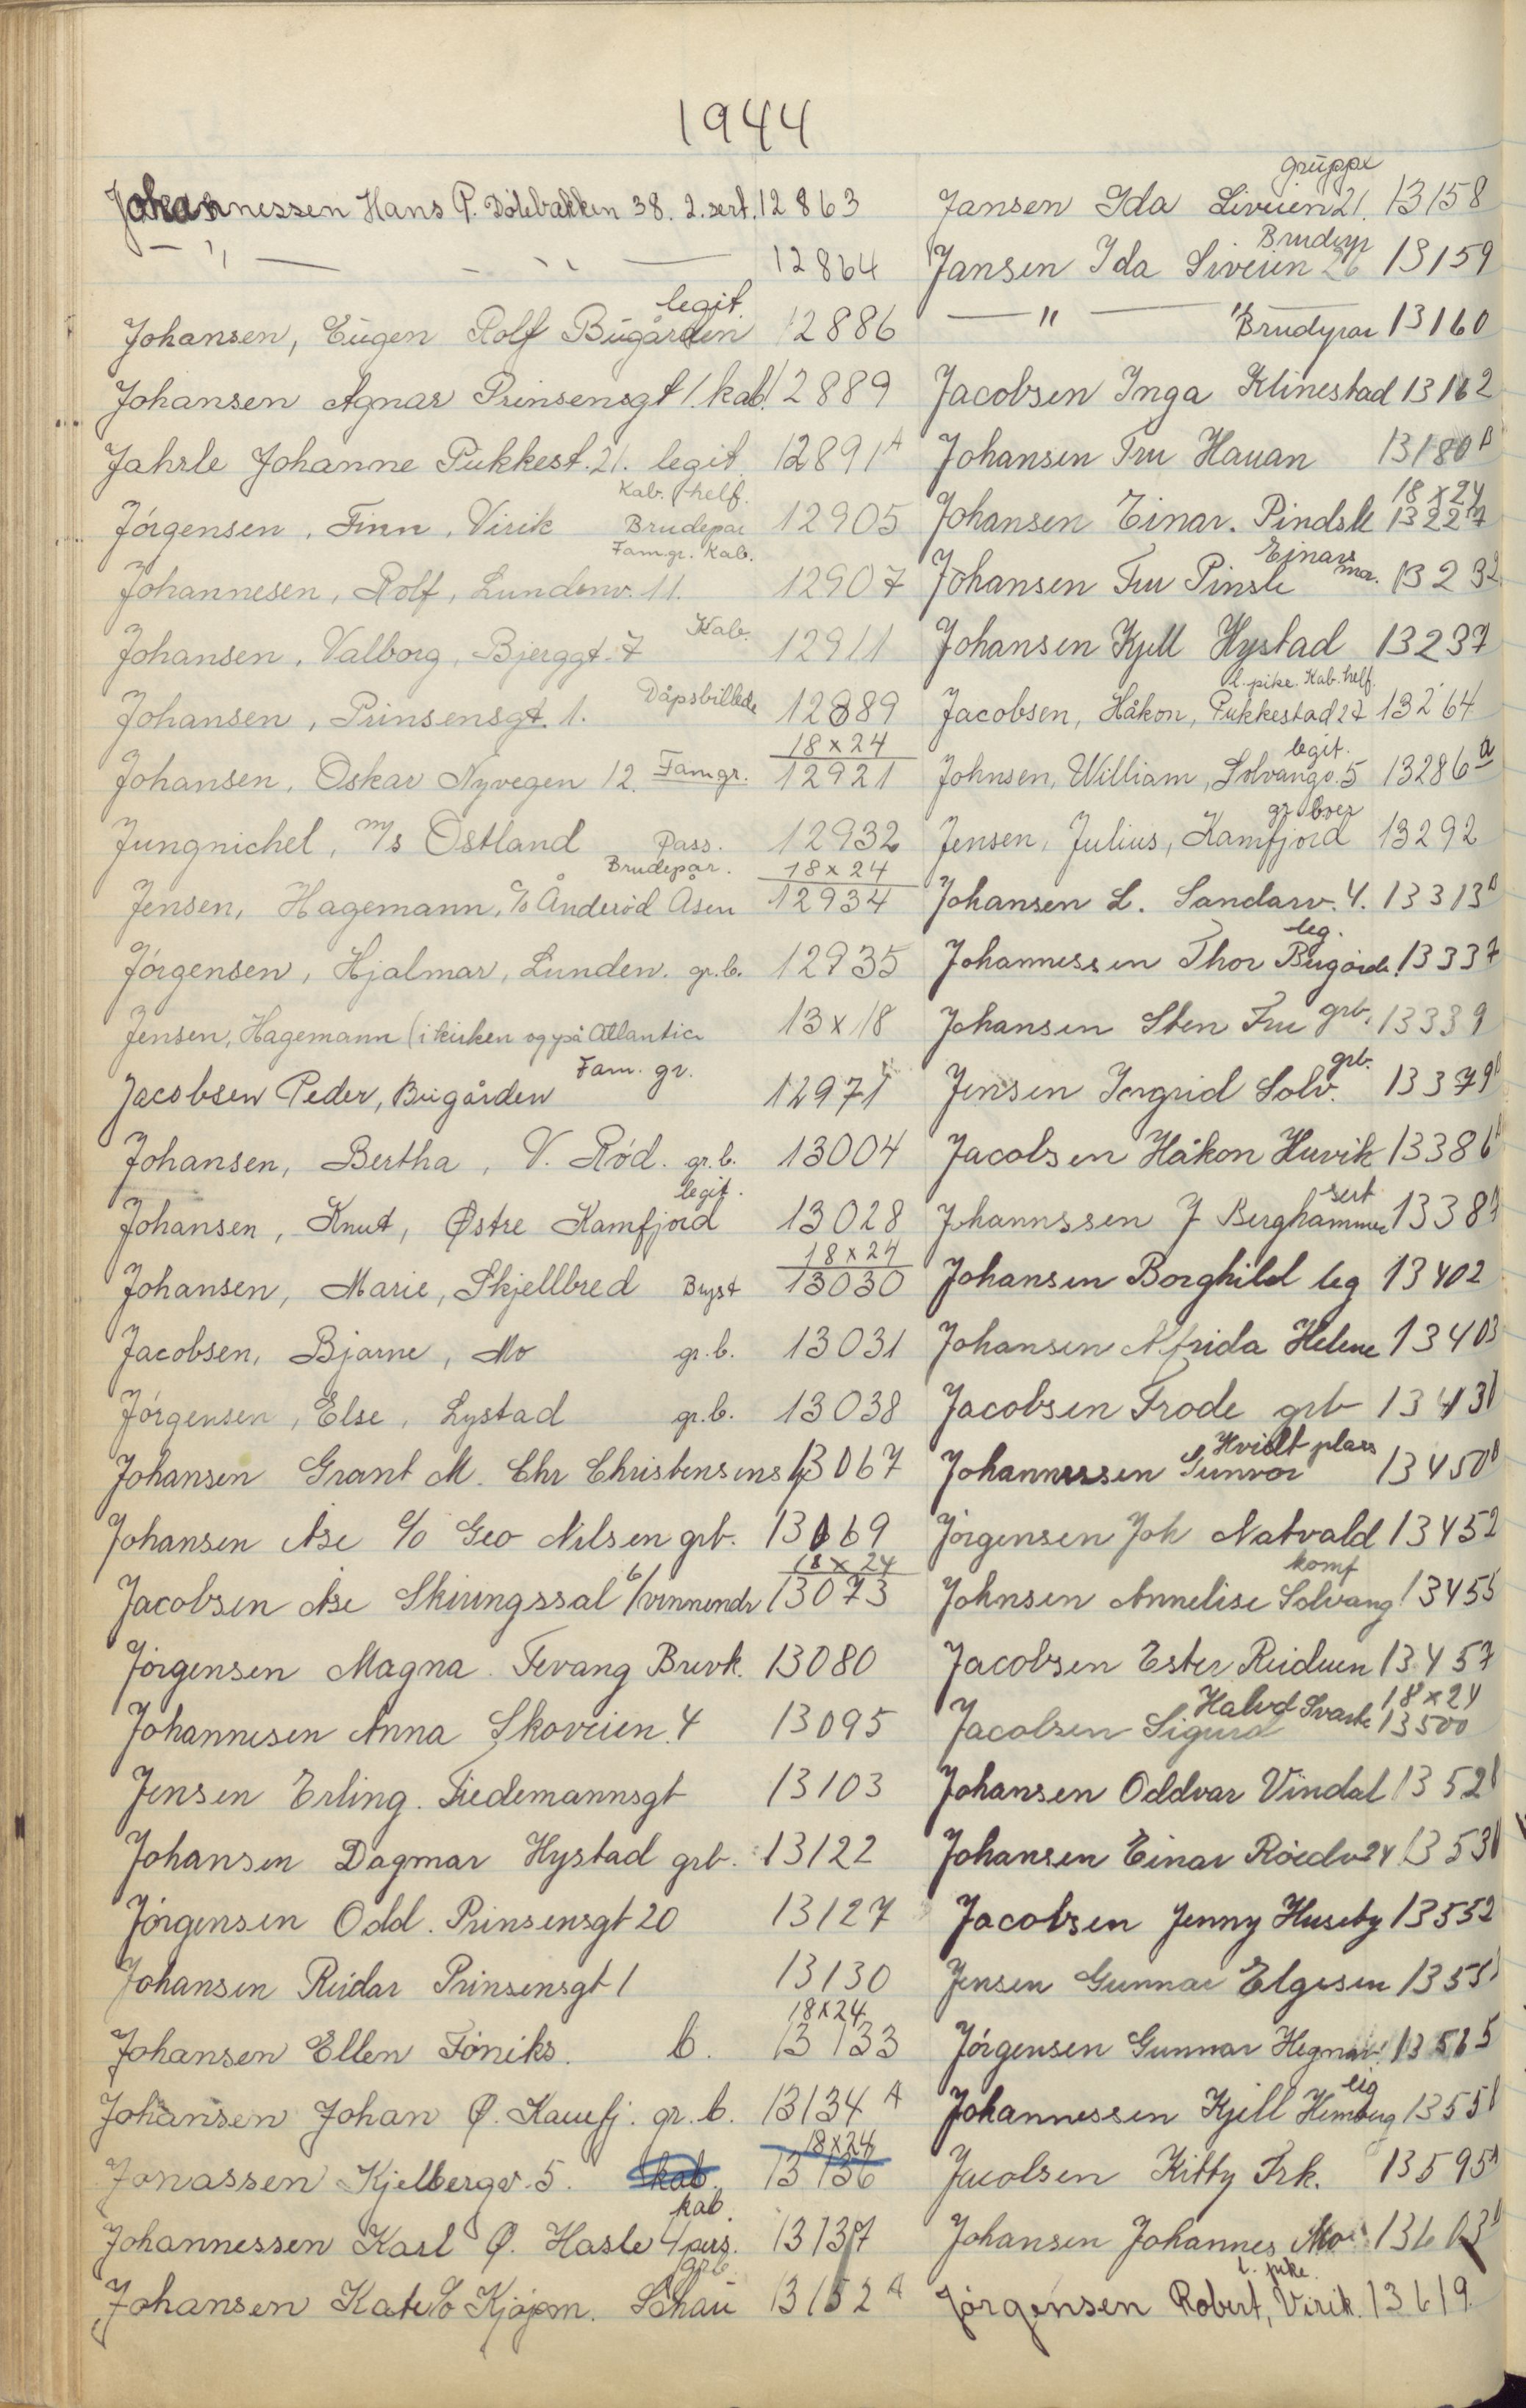 1944
Johannessen Hans P. Dölebakken 38. 2. sert. 12863
— " — - " — 12864
legit.
Johansen, Eugen Rolf Bugården 12886
Johansen Agnar Prinsensgt 1. kab. 12889
Jahrle Johanne Pukkest. 21. legit. 12891 A
Kab. helf.
Jörgensen, Finn, Virik Brudepar 12905
Fam.gr. Kab.
Johannesen, Rolf, Lundenv. 11. 12907
Kab.
Johansen, Valborg, Bjerggt. 7 12911
Johansen, Prinsensgt. 1. Dåpsbillede 12889
18x24
Johansen, Oskar Nyvegen 12. Famgr. 12921
Jungnichel, m/s Ostland Pass. 12932
Brudepar. 18x24
Jensen, Hagemann, % Ånderöd Åsen 12934
Jörgensen, Hjalmar, Lunden. gr.b. 12935
Jensen, Hagemann (i kirken og på Atlantic 13x18
Fam. gr.
Jacobsen Peder, Bugården 12971
Johansen, Bertha, V. Röd. gr.b. 13004
legit.
Johansen, Knut, Østre Kamfjord 13028
18x24
Johansen, Marie, Skjellbred Byst 13030
Jacobsen, Bjarne, Mo gr.b. 13031
Jörgensen, Else, Lystad gr.b. 13038
Johansen Grant M. Chr Christensens 13067
Johansen Åse c/o Geo Nilsen grb. 13069
18x24
Jacobsen Åse Skiringssal 13073
Jörgensen Magna. Fevang Brevk. 13080
Johannesen Anna Skoveien 4 13095
Jensen Erling. Tiedemannsgt 13103
Johansen Dagmar Hystad grb. 13122
Jörgensen Odd. Prinsensgt 20 13127
Johansen Reidar Prinsensgt 1 13130
18x24
Johansen Ellen Föniks. b. 13133
Johansen Johan Ø. Kamfj. gr.b. 13134 A
18x24
Jonassen Kjelbergv. 5. kab. 13136
kab.
Johannessen Karl Ø. Hasle 4 pers. 13137
grb.
Johansen Kate c/o Kjøpm. Schau 13152 A
gruppe
Jansen Ida Liveien 21. 13158
Brudep
Jansen Ida Liveien 26 13159
— " — " Brudepar 13160
Jacobsen Inga Klinestad 13162
Johansen Fru Hauan 13180 A
18x24
Johansen Einar. Pindsle 13227
Einars mor.
Johansen Fru Pinsle 13232
Johansen Kjell Hystad 13237
l. pike. Kab. helf.
Jacobsen, Håkon, Pukkestad 27 13264
legit.
Johnsen, William, Solvangv. 5 13286 a
gr boer
Jensen, Julius, Kamfjord 13292
Johansen L. Sandarv. 4. 13313 A
leg.
Johannessen Thor Bugårde. 13337
Johansen Sten Fru grb. 13339
grb.
Jensen Ingrid Solv. 13379
Jacobsen Håkon Huvik 13386
sert
Johannssen J Berghammer 1338
Johansen Borghild leg 13402
Johansen Alfrida Helene 13403
Jacobsen Frode grb 1343
Hvidt plass
Johannessen Gunvor 13450
Jörgensen Joh Natvald 13452
komf
Johnsen Annelise Solvang 13455
Jacobsen Ester Reidun 13457
Halvd Svarte 18x24
Jacobsen Sigurd 13500
Johansen Oddvar Vindal 1352
Johansen Einar Röedv 24 1353
Jacobsen Jenny Huseby 13552
Jensen Gunnar Elgesen 1355
Jörgensen Gunnar 13565
leg
Johannessen Kjell Hemberg 1355
Jacobsen Kitty Frk. 13595
Johansen Johannes Mo 13603
l. pike.
Jørgensen Robert, Virik. 13619.